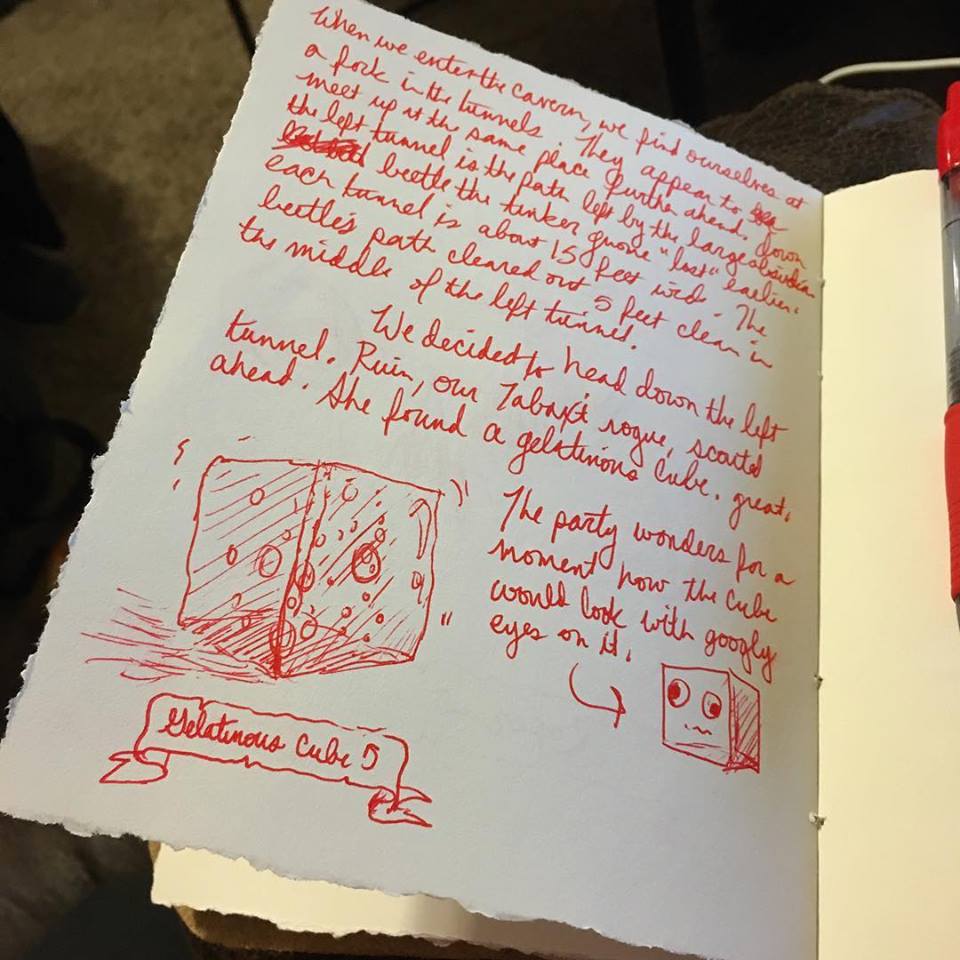 When we enter the cavern, we find ourselves at
a fork in the tunnels. They appear to
meet up at the same place further ahead. Down
the left tunnel is the path left by the large obsidian
beetle the tinker gnome "lost" earlier.
each tunnel is about 15 feet wide. The
beetle's path cleared out 5 feet clean in
the middle of the left tunnel.
We decided to head down the left
tunnel. Ruin, our Tabaxi rogue, scouted
ahead. She found a gelatinous cube. great.
The party wonders for a
moment how the cube
would look with googly
eyes on it.
Gelatinous Cube